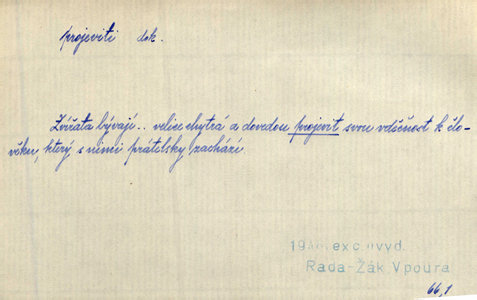 projeviti dok.
Zvířata bývají.. velice chytrá a dovedou projevit svou vděčnost k člo-
věku, který s nimi přátelsky zachází.
exc.
Rada-Žák Vpoura
66,1